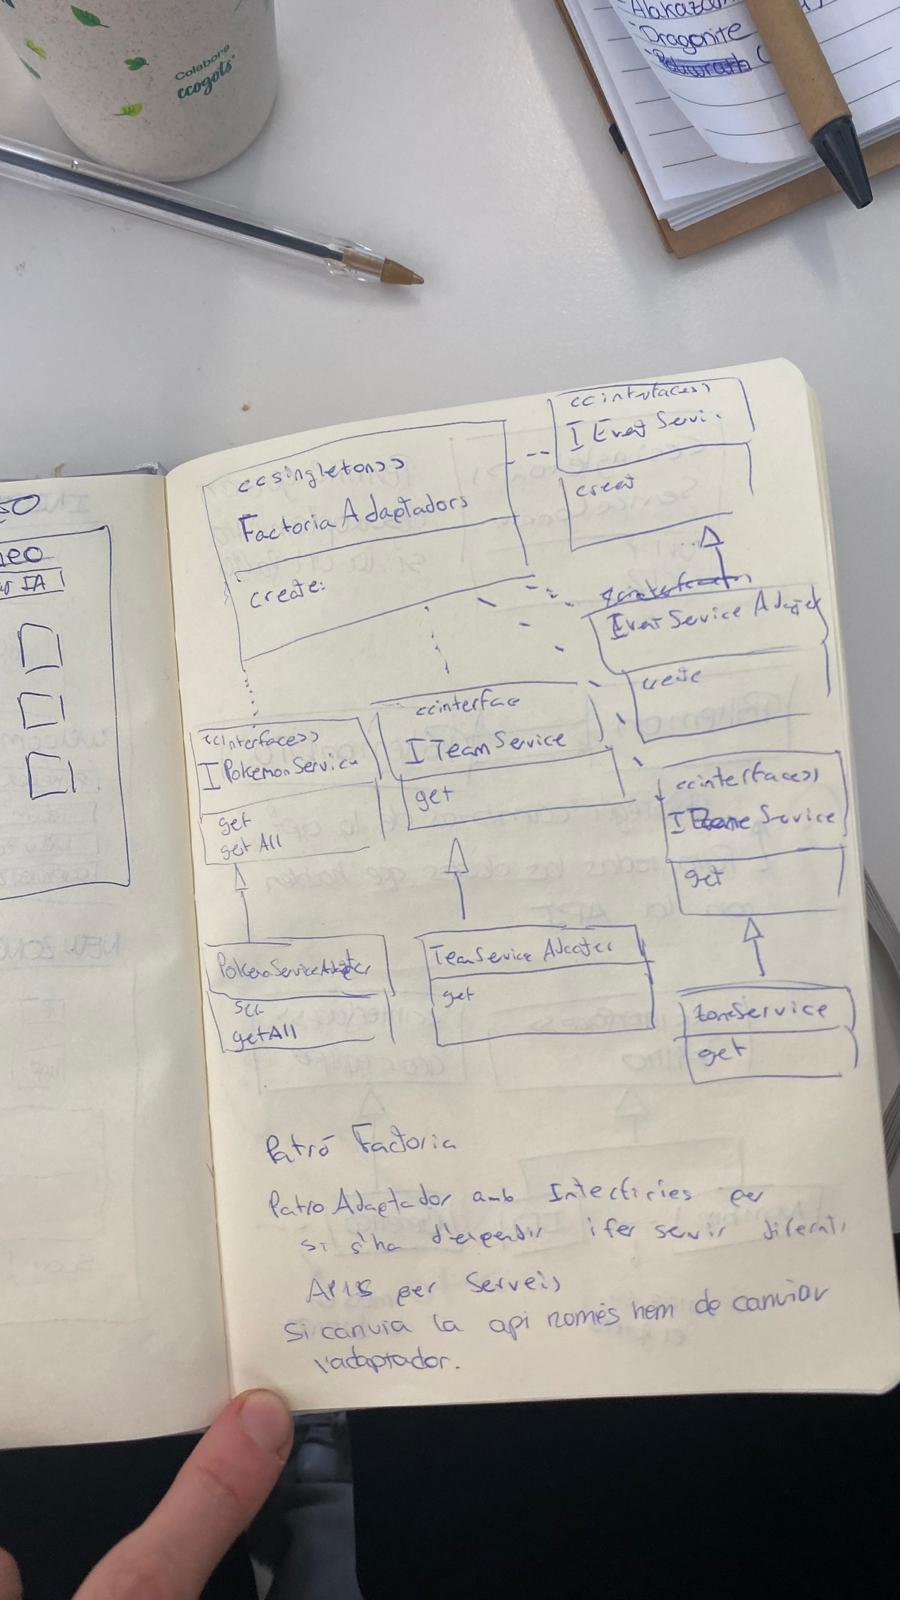 Colabora
ecogots
Alakazam
-Dragonite
-Poliwrath
<<singleton>>
Factoria Adaptadors
create:
<<interfaces>>
I Event Servi.
create
Event Service Adaptad
create
<<interfaces>>
I Pokemon Service
get
get All
<<interface
I Team Service
get
<<interfaces>>
Service
get
Pokemon Service Adapter
getAll
Team Service Adapter
get
zoneService
get
Patró Factoria
Patro Adaptador amb Interficies per
si s'ha d'expandir i fer servir diferents
APIS per Serveis
Si canvia la api només hem de canviar
l'adaptador.